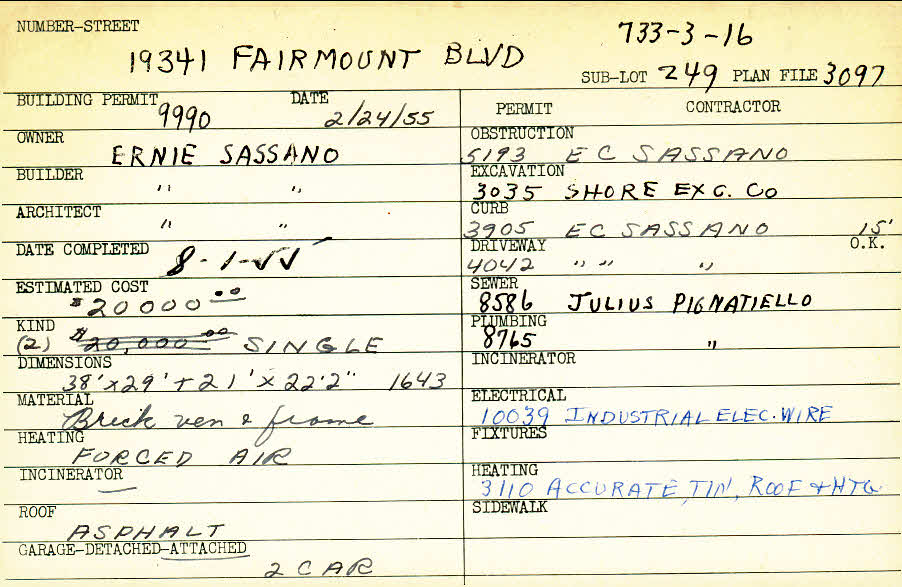 NUMBER-STREET
733-3-16
19341 FAIRMOUNT BLVD
SUB-LOT 249 PLAN FILE 3097
BUILDING PERMIT 9990 DATE 2/24/55
OWNER ERNIE SASSANO
BUILDER " "
ARCHITECT " "
DATE COMPLETED 8-1-55
ESTIMATED COST $20000.00
KIND (2) $20,000.00 SINGLE
DIMENSIONS 38'x29'+21'x22'2" 1643
MATERIAL Brick ven & frame
HEATING FORCED AIR
INCINERATOR —
ROOF ASPHALT
GARAGE-DETACHED-ATTACHED 2 CAR
PERMIT CONTRACTOR
OBSTRUCTION 5193 EC SASSANO
EXCAVATION 3035 SHORE EXC. CO
CURB 3905 EC SASSANO 15'
DRIVEWAY 4042 " " " O.K.
SEWER 8586 JULIUS PIGNATIELLO
PLUMBING 8765 "
INCINERATOR
ELECTRICAL 10039 INDUSTRIAL ELEC. WIRE
FIXTURES
HEATING 3110 ACCURATE, TIN, ROOF & HTG
SIDEWALK